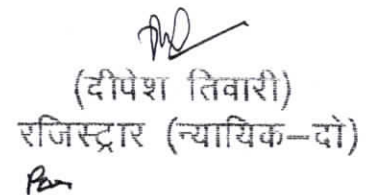 (दीपेश तिवारी)
रजिस्ट्रार (न्यायिक–दो)